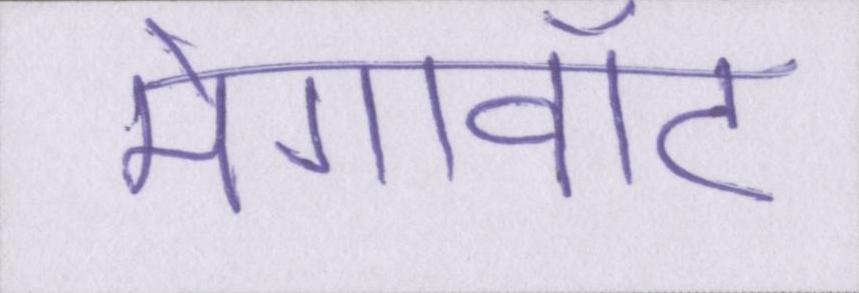 मेगावॉट